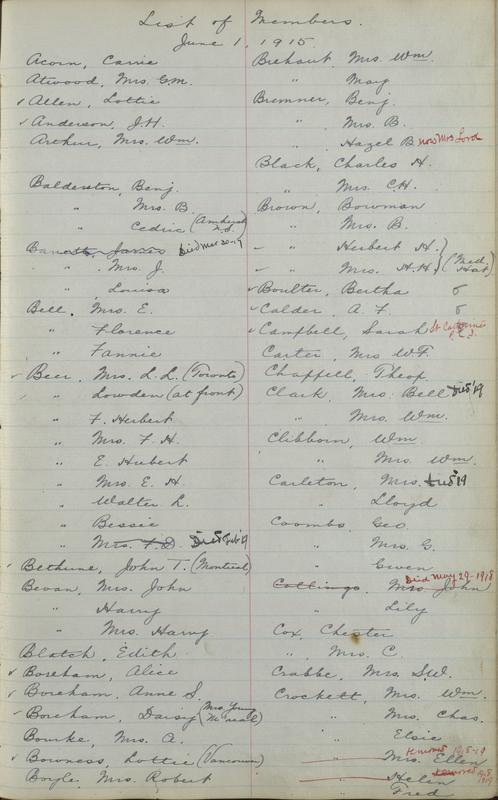 List of Members.
June 1, 1915.
Acorn, Carrie
Atwood, Mrs. G.M.
✓ Allen, Lottie
✓ Anderson, J.H.
Arthur, Mrs. Wm.
Balderston, Benj.
" Mrs. B.
" Cedric (Amherst N.S.)
James Died Mar 20-19
" Mrs. J.
" Louisa
Bell, Mrs. E.
" Florence
" Fannie
✓ Beer, Mrs. L.L. (Toronto)
" Lowden (at front)
" F. Herbert
" Mrs. F. H.
" E. Hubert
" Mrs. E. H.
" Walter L.
" Bessie
" Mrs. F.D. Died Feb 19
✓ Bethune, John T. (Montreal)
Bevan, Mrs. John
" Harry
" Mrs. Harry
Blatch, Edith
✓ Boreham, Alice
✓ Boreham, Anne S.
✓ Boreham, Daisy (Mrs. Young Montreal)
Bourke, Mrs. A.
✓ Bowness, Lottie (Vancouver)
Boyle, Mrs. Robert
Brehaut, Mrs. Wm.
" May
Bremner, Benj.
" Mrs. B.
" Hazel B now Mrs Lord
Black, Charles H.
" Mrs. C.H.
Brown, Bowman
" Mrs. B.
" Herbert H. } (Med.
" Mrs. H.H. } Hat)
✓ Boulter, Bertha
✓ Calder, A. F.
✓ Campbell, Sarah
Carter, Mrs W.F.
Chappell, Theop.
Clark, Mrs. Bell Died '19
" Mrs. Wm.
Clibborn, Wm.
" Mrs. Wm.
Carleton, Mrs. Died '19
" Lloyd
Coombs, Geo.
" Mrs. G.
" Gwen
Collings, Mrs John Died May 29-1918
" Lily
Cox, Chester
" Mrs. C.
Crabbe, Mrs. S.W.
Crockett, Mrs. Wm.
" Mrs. Chas.
" Elsie
" Mrs. Ellen Removed
" Helen Removed
" Fred